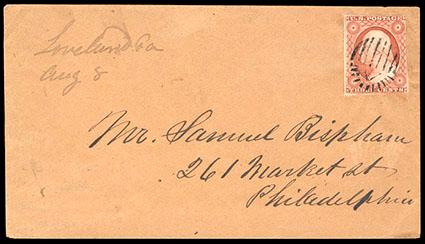 Loveland Pa
Aug 8
U.S. POSTAGE
THREE CENTS
Mr. Samuel Bispham
261 Market st
Philadelphia